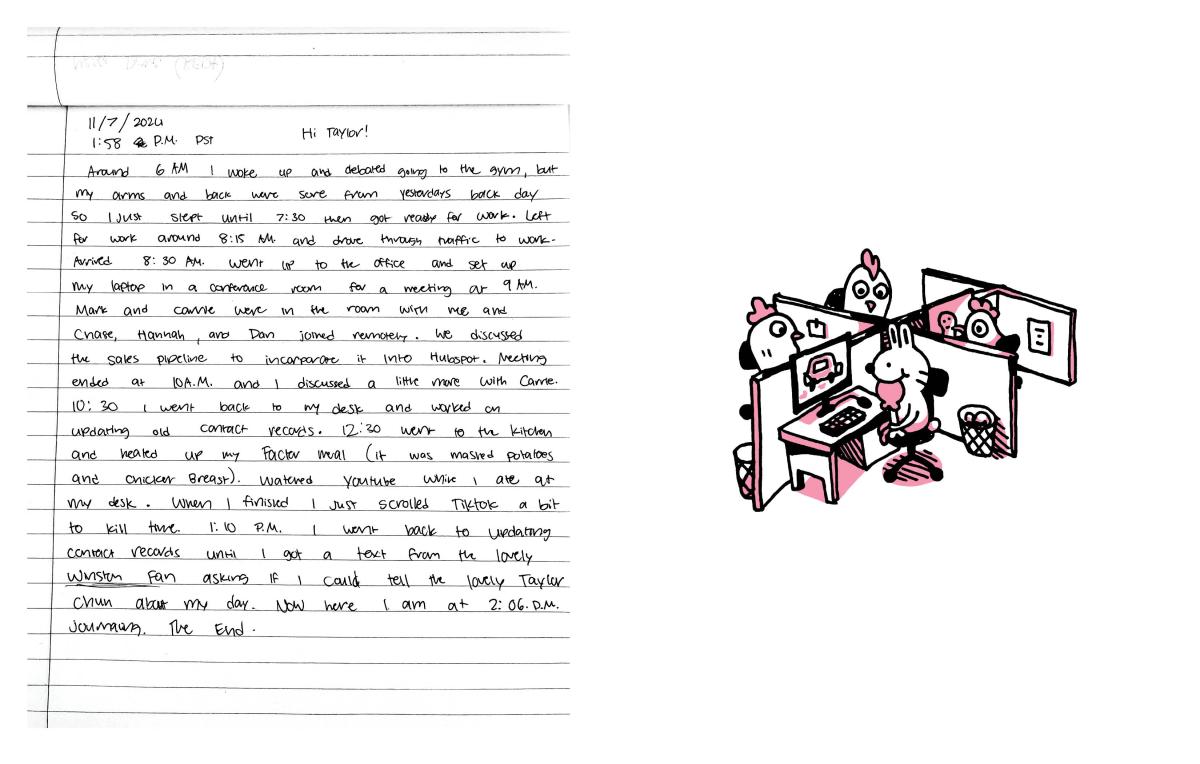 11/7/2024
1:58 P.M. PST
Hi Taylor!
Around 6 AM I woke up and debated going to the gym, but
my arms and back were sore from yesterdays back day
so I just slept until 7:30 then got ready for work. Left
for work around 8:15 AM. and drove through traffic to work.
Arrived 8:30 AM. Went up to the office and set up
my laptop in a conference room for a meeting at 9 AM.
Mark and Carrie were in the room with me and
Chase, Hannah, and Dan joined remotely. We discussed
the sales pipeline to incorporate it into Hubspot. Meeting
ended at 10A.M. and I discussed a little more with Carrie.
10:30 I went back to my desk and worked on
updating old contact records. 12:30 went to the kitchen
and heated up my Factor meal (it was mashed potatoes
and chicken Breast). Watched Youtube while I ate at
my desk. When I finished I just scrolled TikTok a bit
to kill time. 1:10 P.M. I went back to updating
contact records until I got a text from the lovely
Winston Fan asking if I could tell the lovely Taylor
Chun about my day. Now here I am at 2:06.P.M.
Journaling. The End.